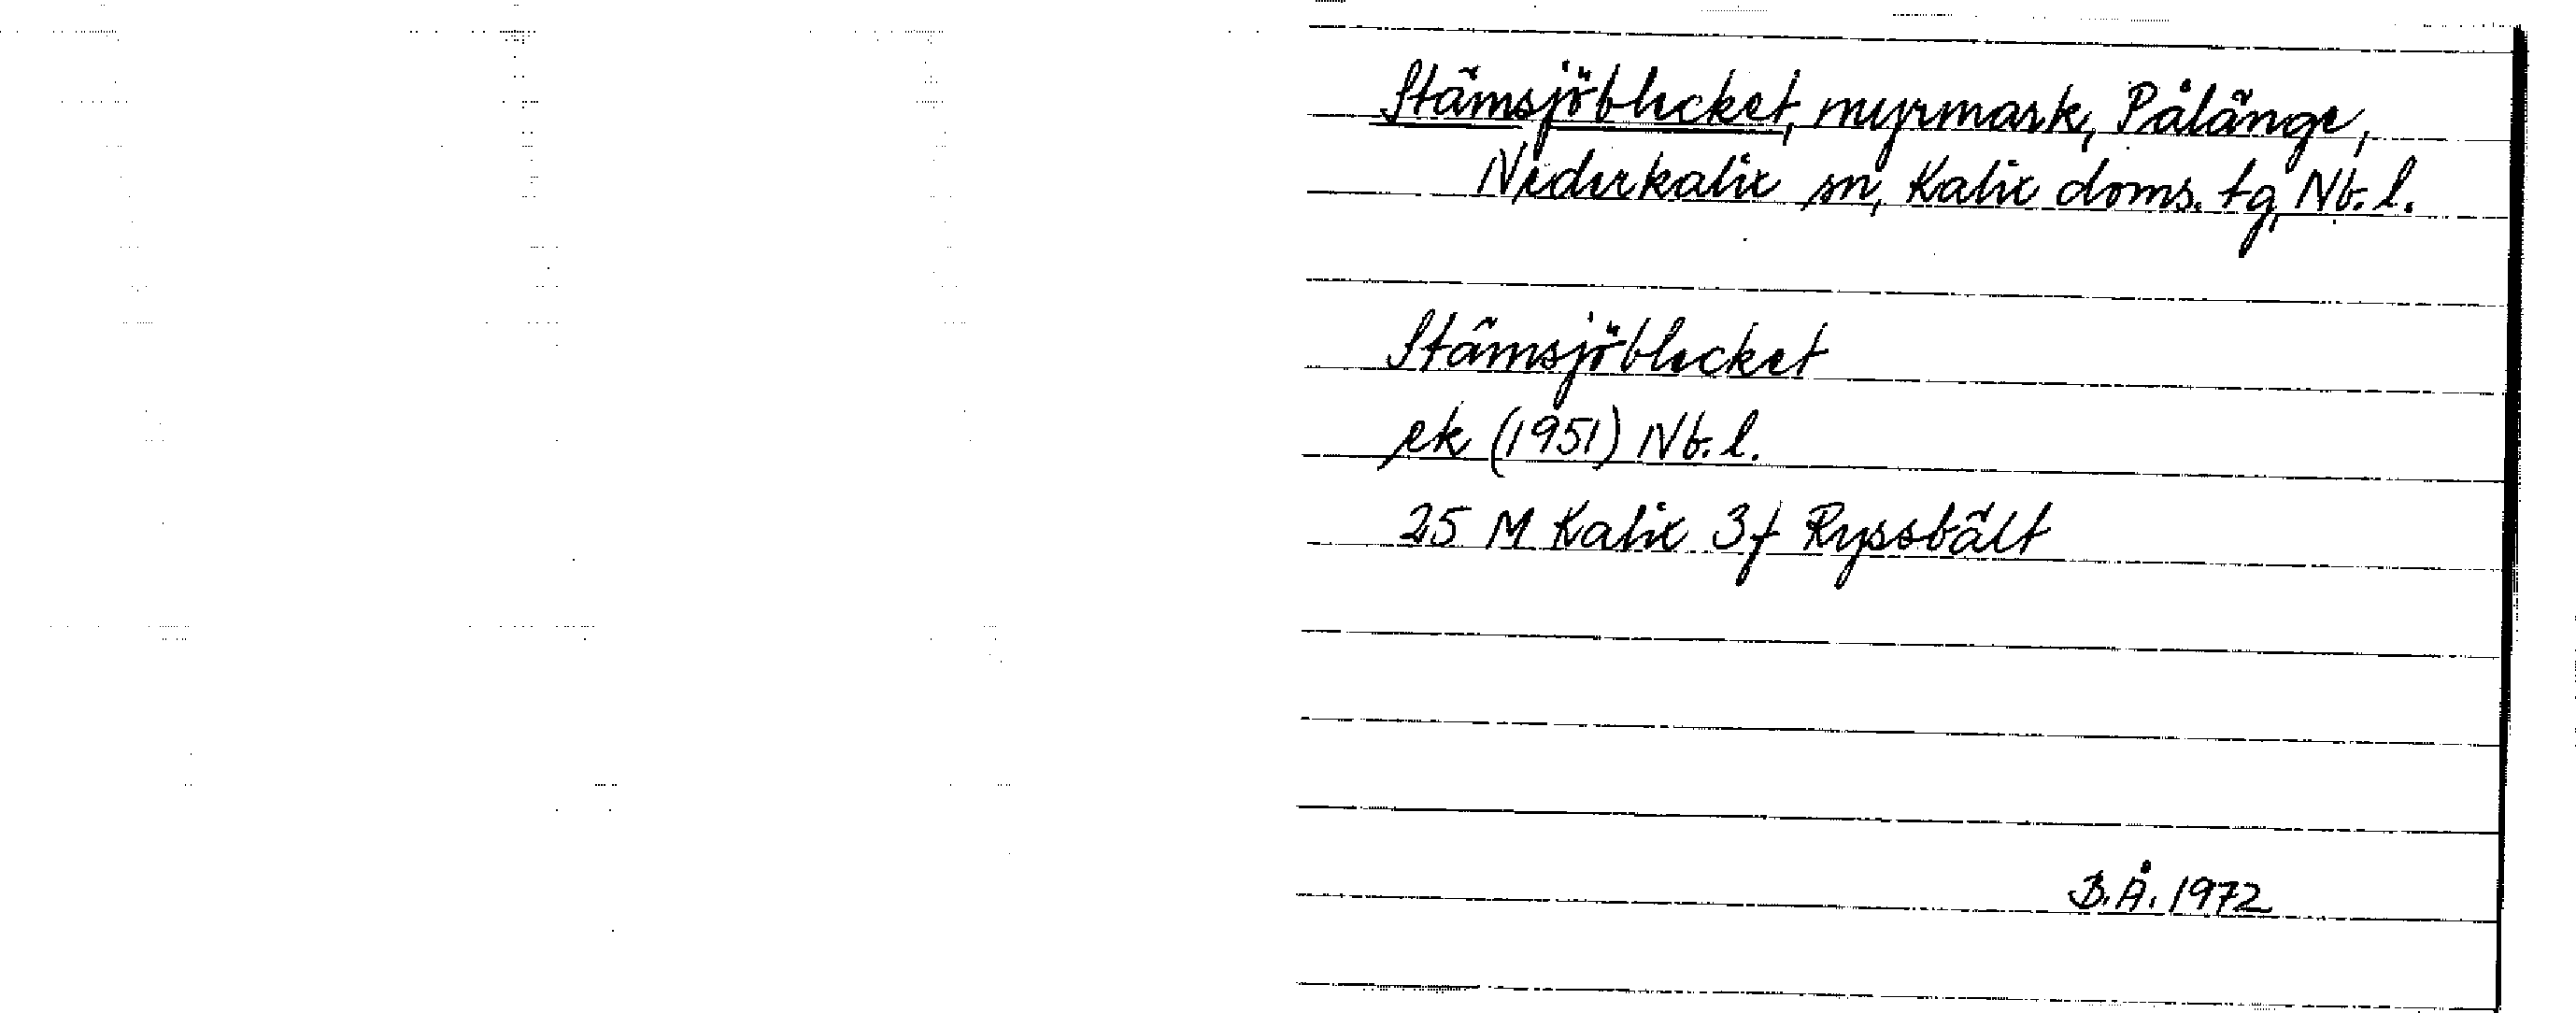 Stämsjöblecket, myrmark, Pålänge,
Nederkalix sn, Kalix doms. tg, Nb. l.
Stämsjöblecket
ek (1951) Nb. l.
25 M Kalix 3f Ryssbält
B.Å. 1972